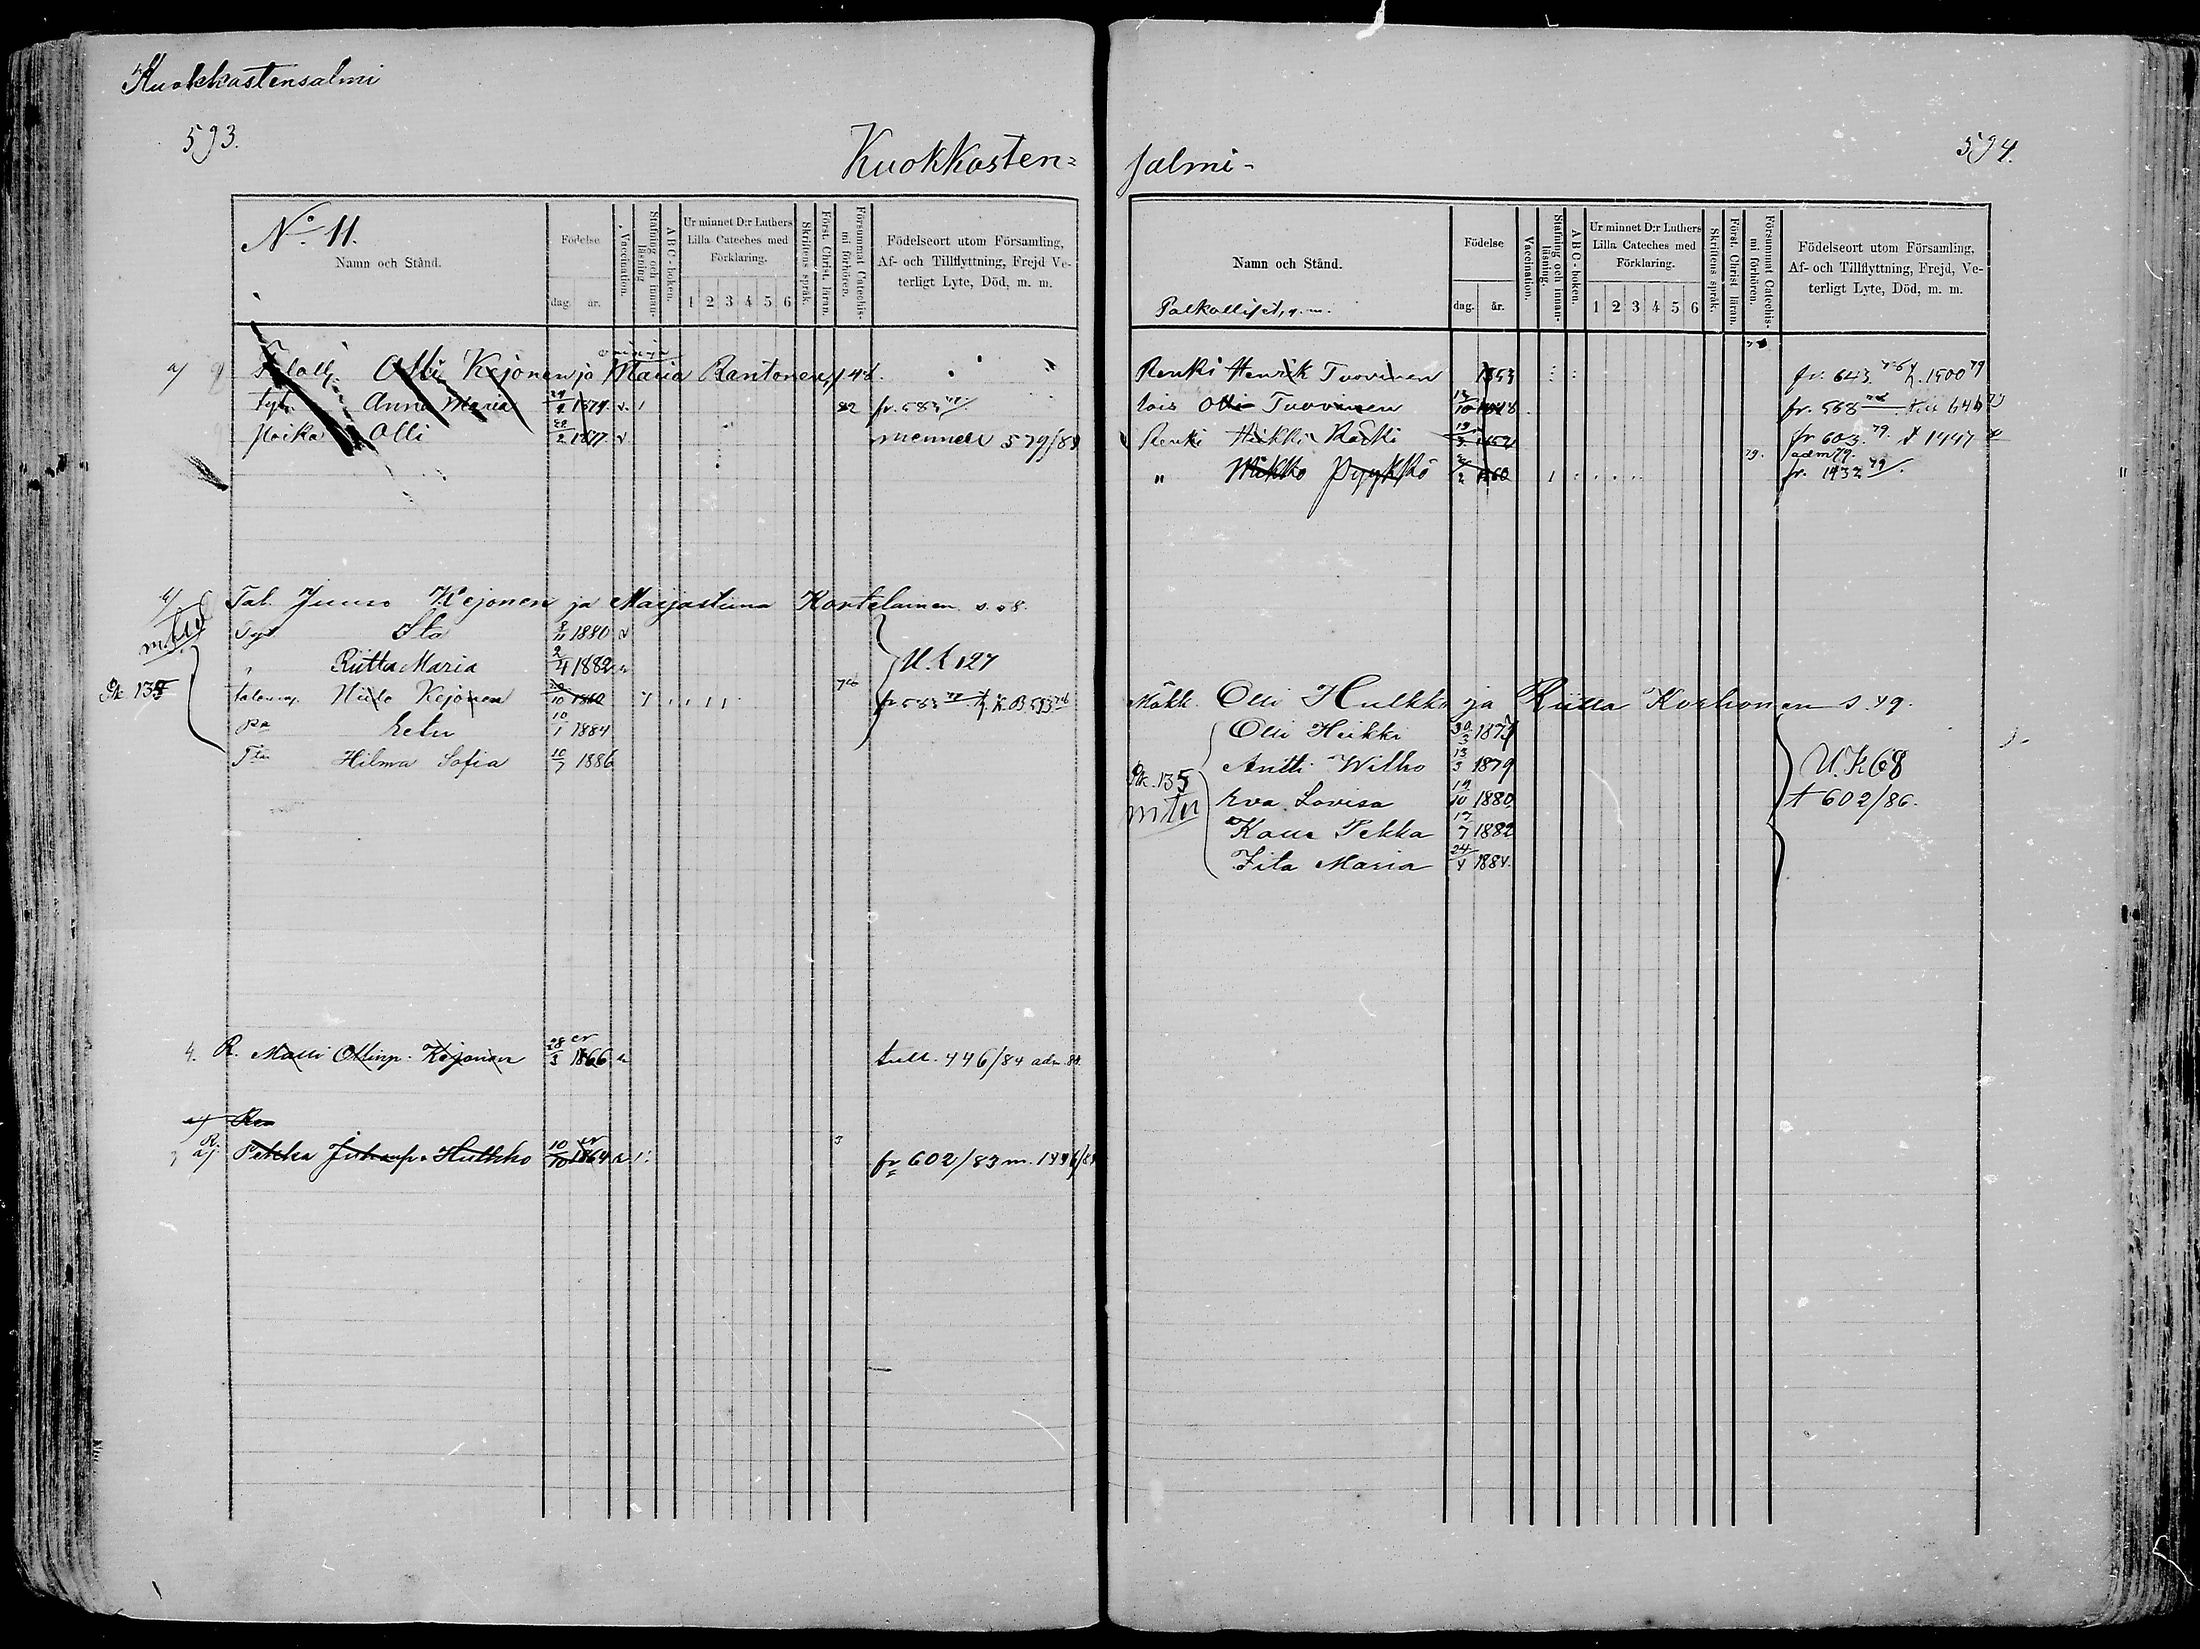 Kuokkastensalmi
593.
Kuokkasten=
No. 11.
Namn och Stånd.
Födelse
dag. år.
Vaccination.
Stafning och innanläsning
ABC-boken.
Ur minnet D:r Luthers Lilla Cateches med Förklaring.
1 2 3 4 5 6
Skriftens språk.
Först. Christ. läran.
Försummat Catechismi förhören.
Födelseort utom Församling, Af- och Tillflyttning, Frejd Veterligt Lyte, Död, m. m.
a) Olli Kejonen ja Maria Rantonen, 48.
Tyt. Anna Maria 1874 v. 1 82 fr. 583
Poika Olli 1877 v. mennen 579/8
Tal. Juuso Kejonen ja Marjastiina Kortelainen s. 58.
mtu
Tyt. Ita 1880 v
" Riitta Maria 2/4 1882 U.K 127
Pk 135
Niilo Kejonen 1860 fr. 583
Eetu 10/1 1884
Hilma Sofia 10/7 1886
4. R. Matti Ollinp. Kejonen 28/3 1866 tull. 446/84 adm. 84
R. Pekka Juhanp. Hulkko 10/10 1864 fr 602/83 m.
salmi-
594.
Namn och Stånd.
Palkolliset, y. m.
Födelse
dag. år.
Vaccination.
Stafning och innanläsning.
ABC-boken.
Ur minnet D:r Luthers Lilla Cateches med Förklaring.
1 2 3 4 5 6
Skriftens språk.
Först. Christ läran.
Försummat Catechismi förhören.
Födelseort utom Församling, Af- och Tillflyttning, Frejd, Veterligt Lyte, Död, m. m.
Renki Henrik Tuovinen 1853 fr. 643. 1500 79
lois Olli Tuovinen fr. 568
Renki Heikki Räcki fr 603. 79. 1447
adm 79.
" Mikko Pyykkö 1860 79. fr. 1432 79
Mökk. Olli Hulkko ja Riitta Korhonen s. 49.
Olli Heikki 30/3 187
Antti Wilho 13/3 1879 U.K 68
Pk. 135
mtu
Eva Lovisa 1880 602/86.
Kalle Pekka 17/7 1882
Iita Maria 24/4 1884.